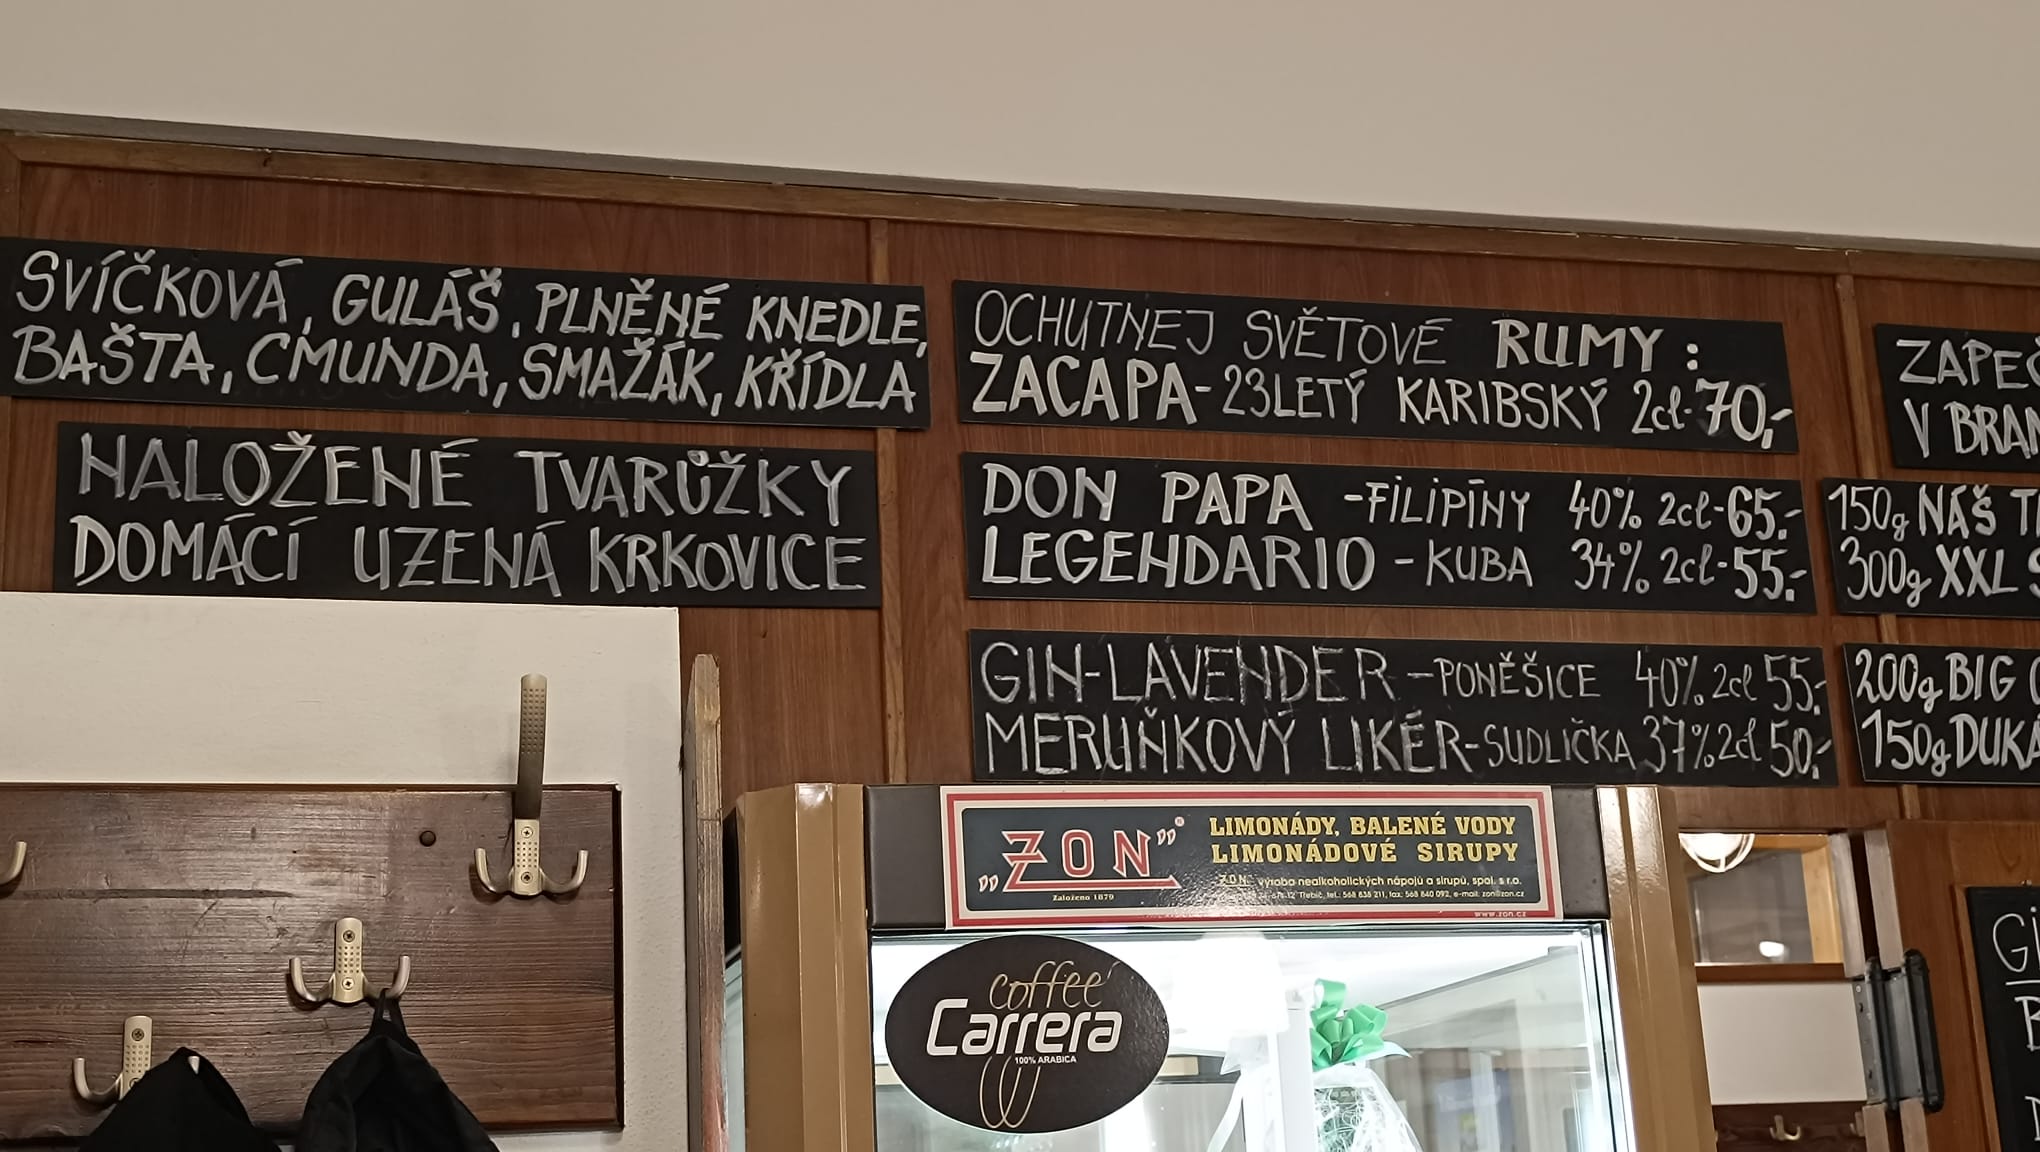 SVÍČKOVÁ, GULÁŠ, PLNĚNÉ KNEDLE,
BAŠTA, CMUNDA, SMAŽÁK, KŘÍDLA
NALOŽENÉ TVARŮŽKY
DOMÁCÍ UZENÁ KRKOVICE
OCHUTNEJ SVĚTOVÉ RUMY:
ZACAPA-23LETÝ KARIBSKÝ 2cl-70,-
DON PAPA -FILIPÍNY 40% 2cl-65.-
LEGENDARIO -KUBA 34% 2cl-55.-
GIN-LAVENDER -PONĚŠICE 40% 2cl 55.-
MERUŇKOVÝ LIKÉR-SUDLIČKA 37% 2cl 50.-
V
150g NÁŠ
300g XXL
200g BIG
150g
ZON®
Založeno 1879
LIMONÁDY, BALENÉ VODY
LIMONÁDOVÉ SIRUPY
ZON výroba nealkoholických nápojů a sirupů, spol. s r.o.
Třebíč, tel.: 568 838 211, fax: 568 840 092, e-mail: zon@zon.cz
www.zon.cz
coffee
Carrera
100% ARABICA